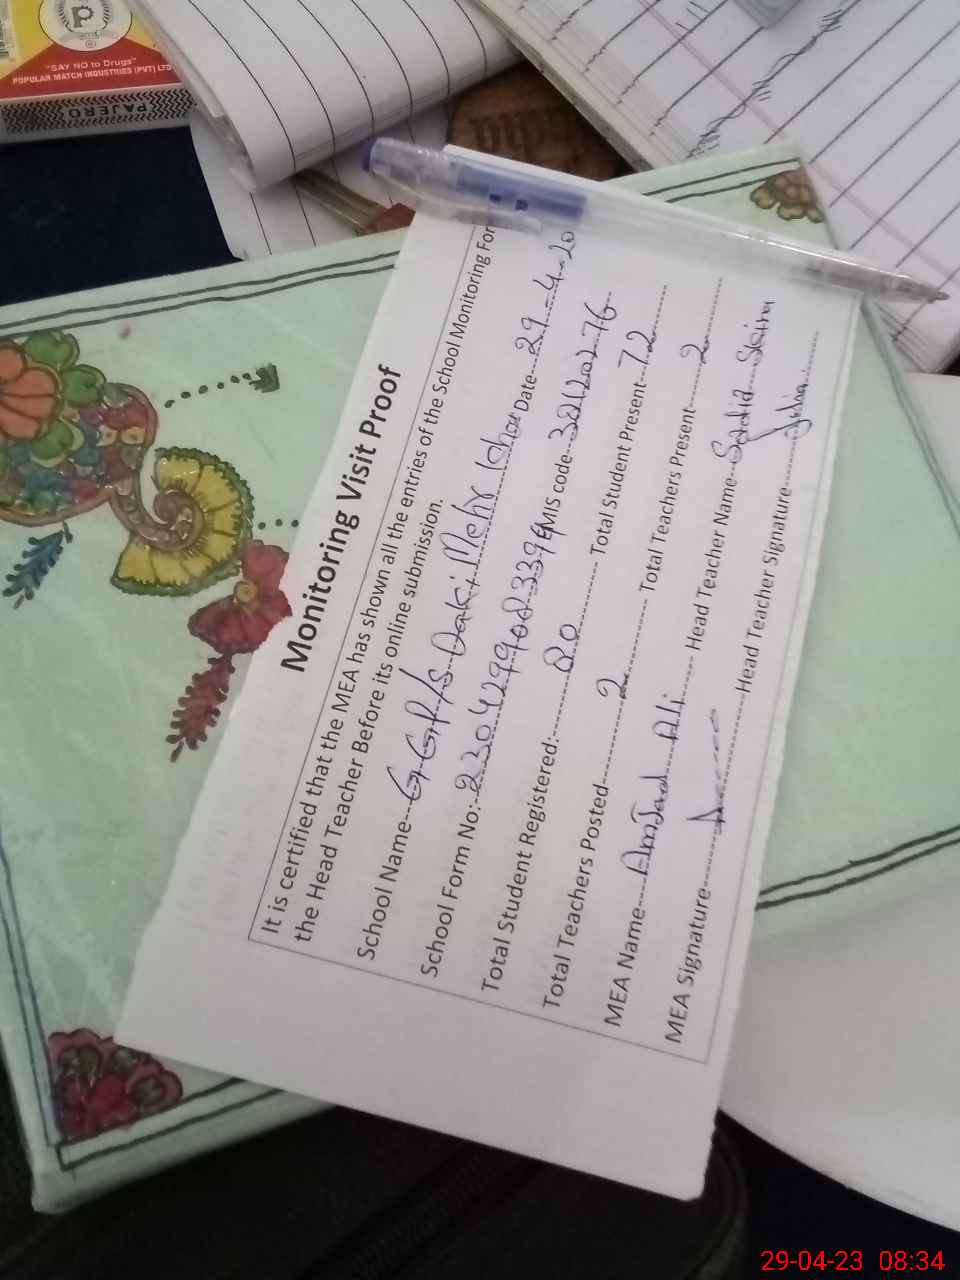 "SAY NO to Drugs"
POPULAR MATCH INDUSTRIES (PVT) LTD
PAJERO
Monitoring Visit Proof
It is certified that the MEA has shown all the entries of the School Monitoring For
the Head Teacher Before its online submission.
School Name G.GP/S Daki Mehr Date 29-4-20
School Form No: EMIS code
Total Student Registered: 80 Total Student Present 72
Total Teachers Posted 2 Total Teachers Present 2
MEA Name Amjad Ali Head Teacher Name Sadia
MEA Signature Head Teacher Signature
29-04-23 08:34